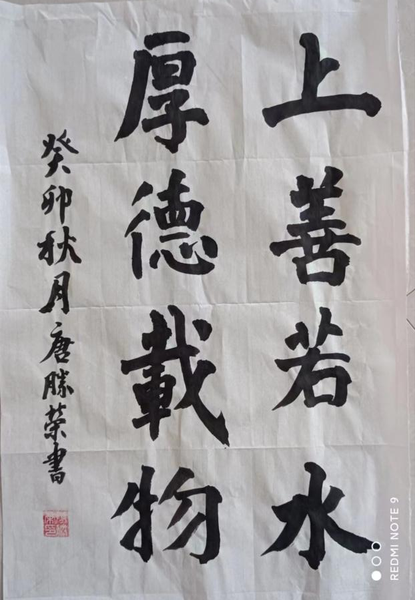 上善若水
厚德載物
癸卯秋月唐勝荣書
REDMI NOTE 9